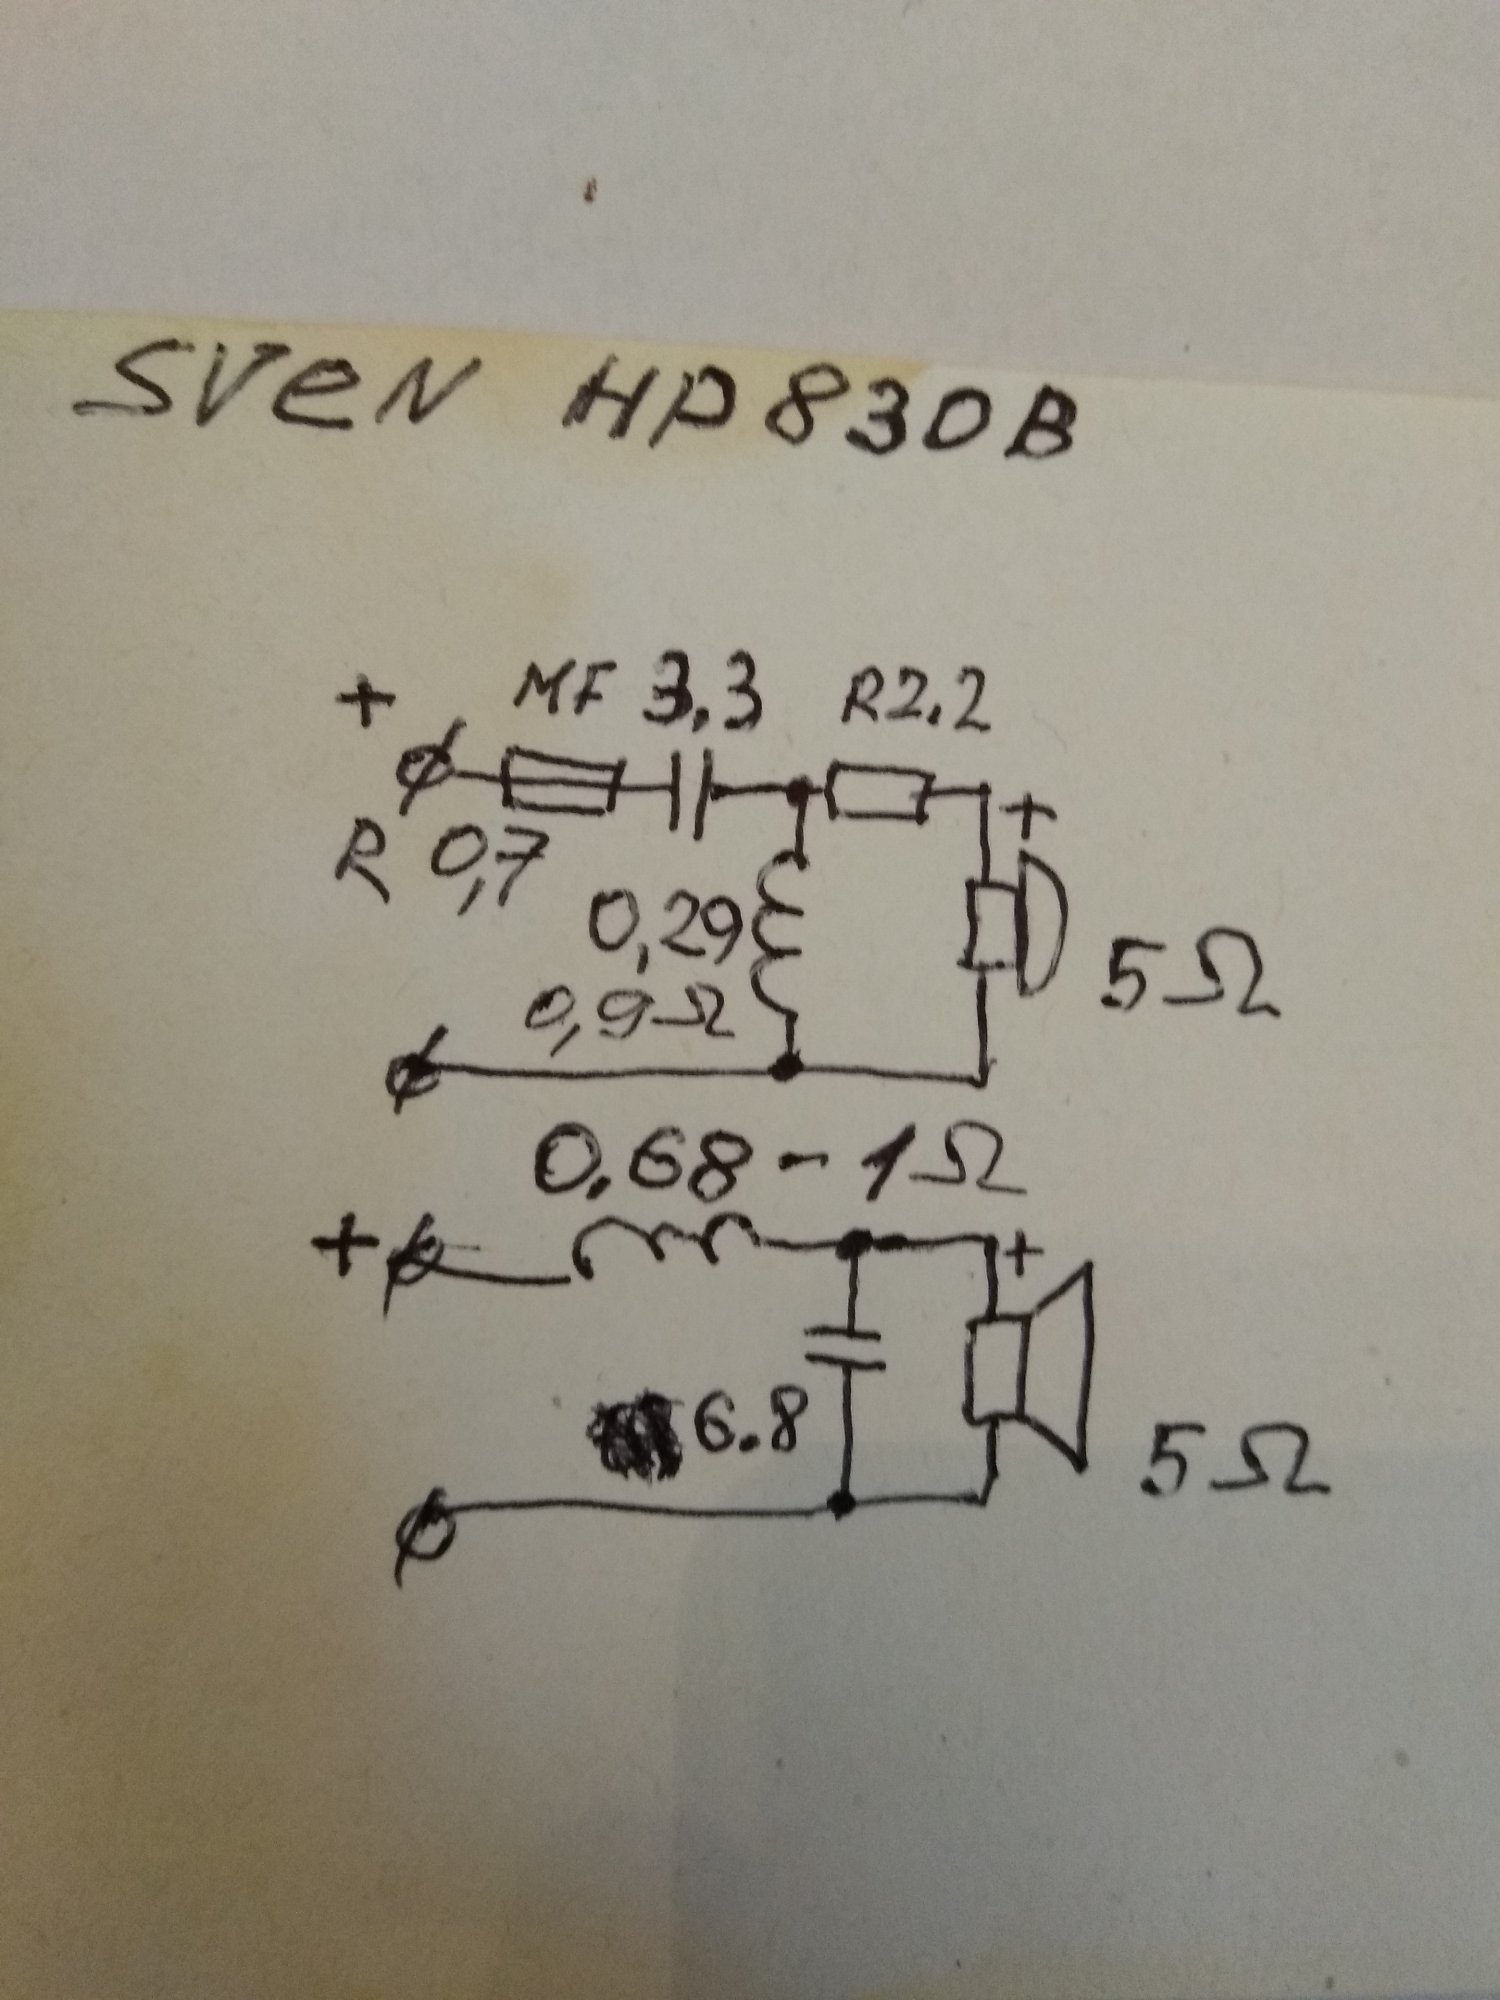 SVEN HP830B
+ MF 3,3 R2.2
+
R 0,7
0,29
5Ω
0,9Ω
0.68-1Ω
+ +
6.8
5Ω